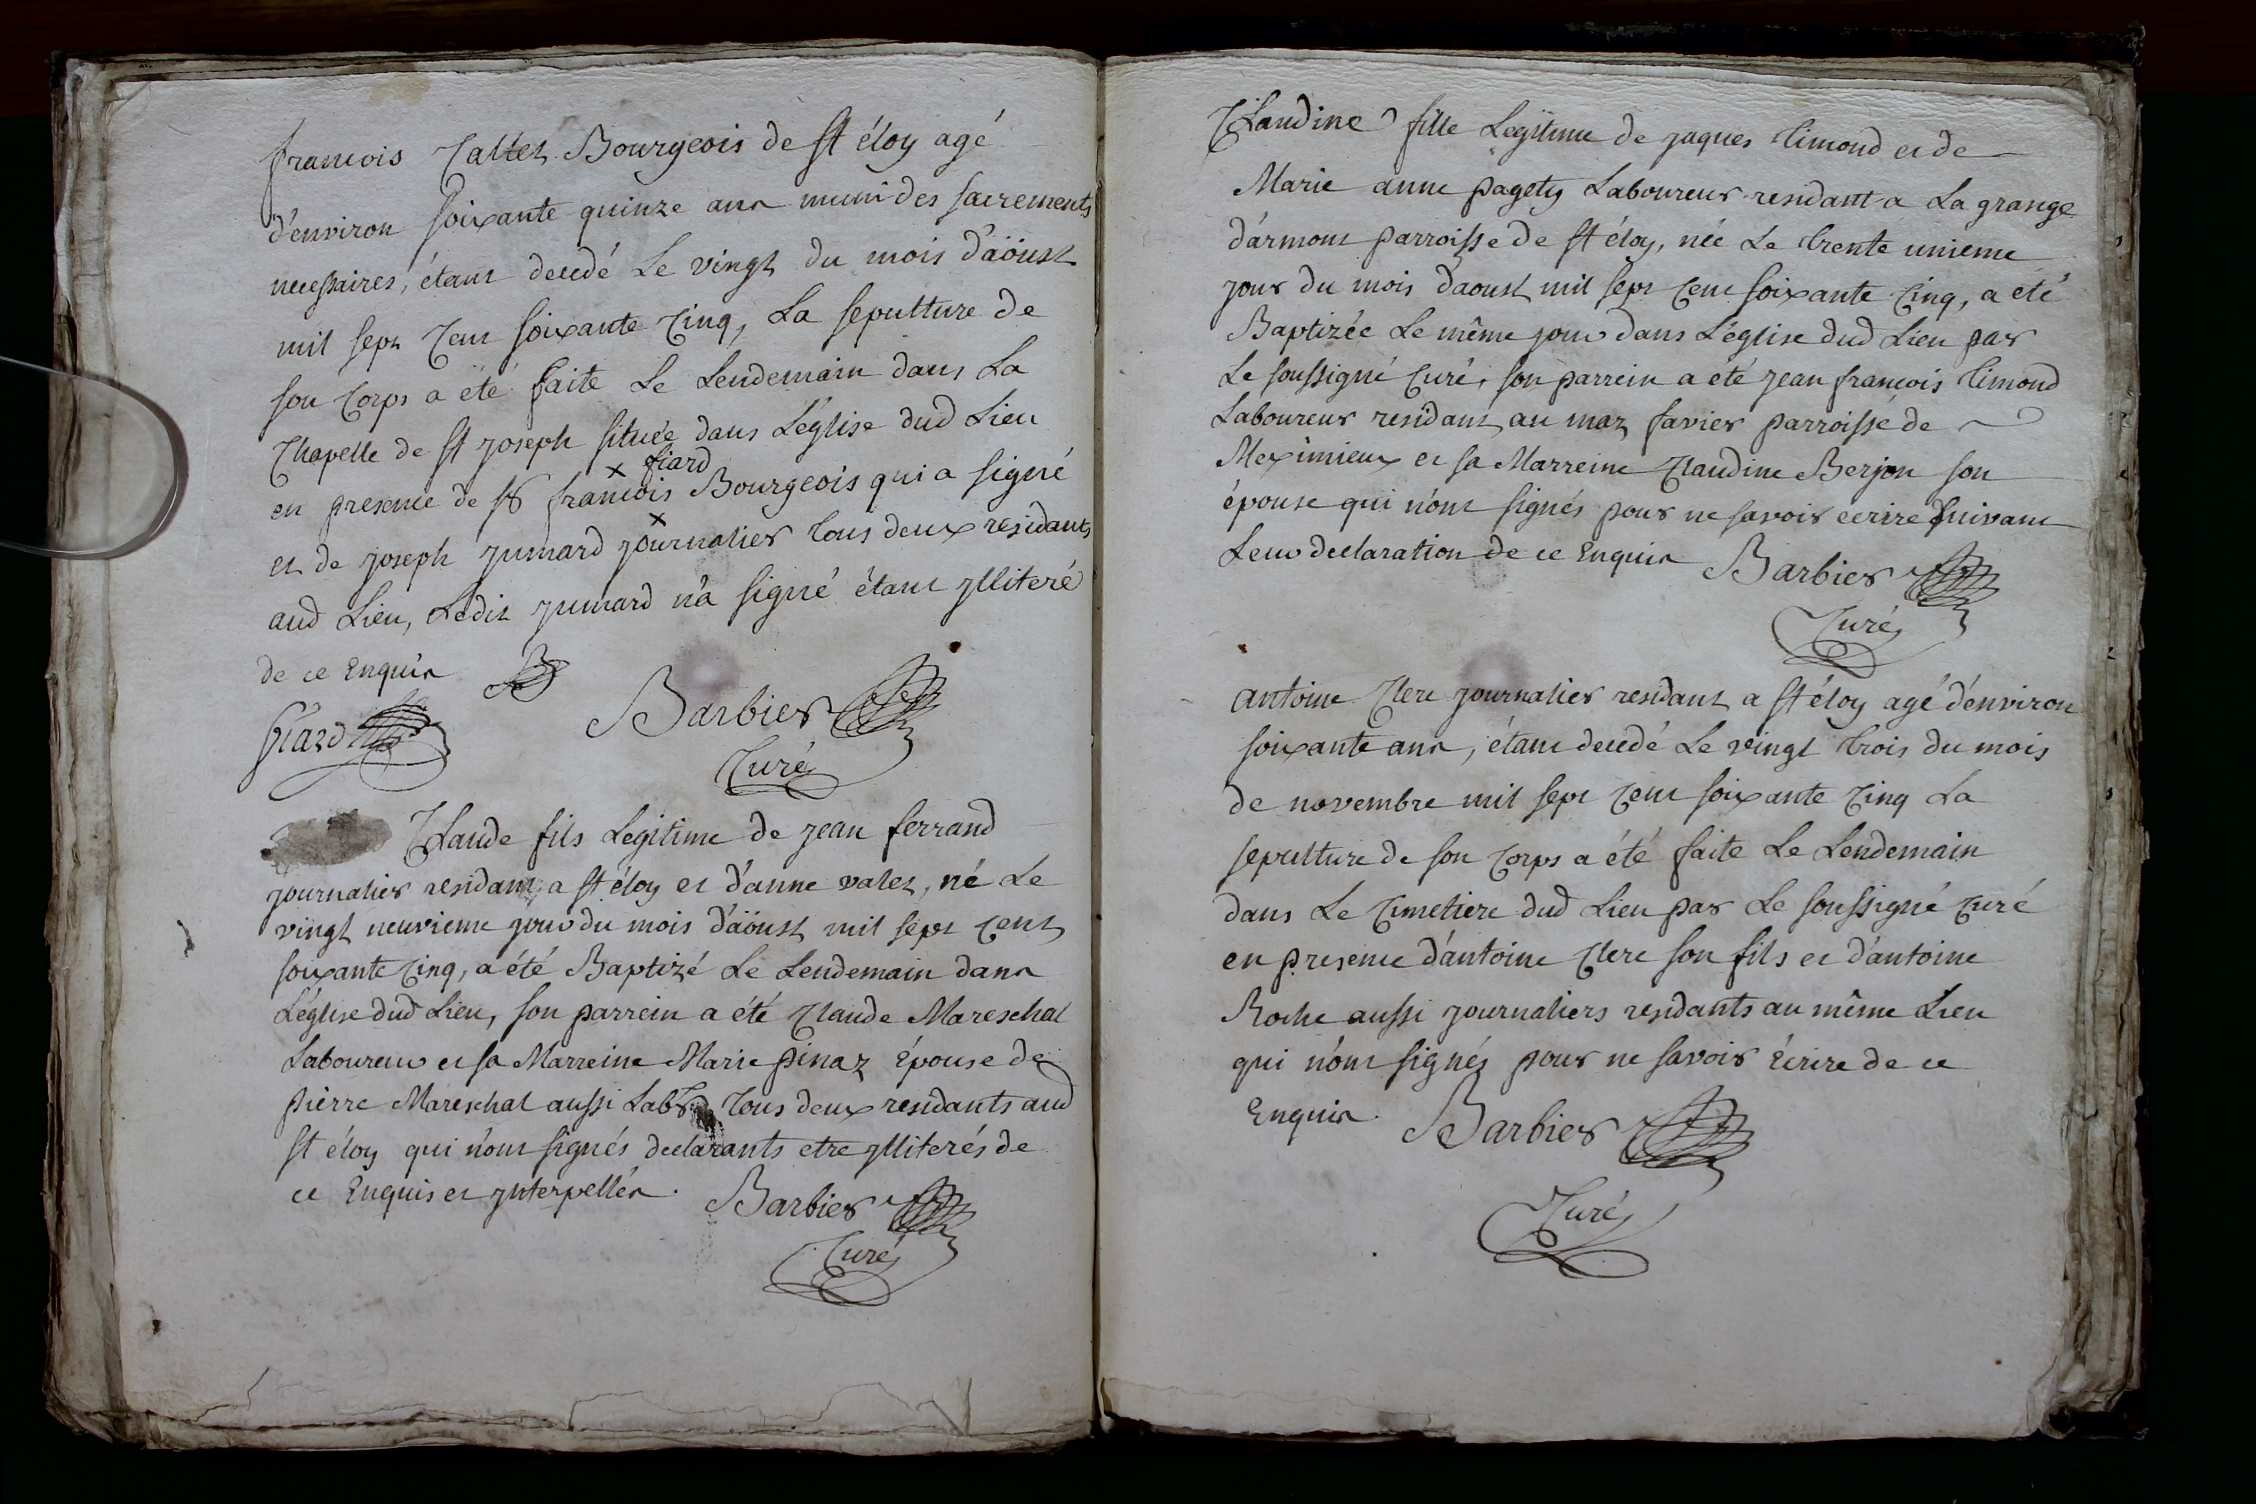 francois Callet Bourgeois de St éloy agé
d'environ soixante quinze ans muni des sacrements
necessaires, étant decedé Le vingt du mois d'aöust
mil sept Cent soixante Cinq, La sepulture de
son Corps a été faite Le Lendemain dans La
Chapelle de St joseph située dans L'église dud Lieu
fiard
en presence de sr francois x Bourgeois qui a signé
et de joseph jumard x journalier tous deux residants
aud Lieu, Ledit jumard n'a signé étant ylliteré
de ce Enquis
Barbier
fiard
Curé
Claude fils Légitime de jean ferrand
journalier residant a St éloy et d'anne valet, né Le
vingt neuvieme jour du mois d'aöust mil sept Cent
soixante Cinq, a été Baptizé Le Lendemain dans
L'église dud Lieu, son parrein a été Claude Mareschal
Laboureur et sa Marreine Marie pinaz Épouse de
pierre Mareschal aussi Labr tous deux residants aud
St éloy qui n'ont signés declarants etre ylliterés de
ce Enquis et ynterpellés. Barbier
Curé
Claudine fille Legitime de jaques timond et de
Marie anne pagety Laboureur residant a La grange
d'armont parroisse de St éloy, née Le trente unieme
jour du mois d'aoust mil sept Cent soixante Cinq, a eté
Baptizée Le même jour dans L'église dud Lieu par
Le soussigné Curé, son parrein a eté jean francois timond
Laboureur residant au maz favier parroisse de
Meximieux et sa Marreine Claudine Berjon son
épouse qui n'ont signés pour ne savoir ecrire suivant
Leur declaration de ce Enquis Barbier
Curé
antoine Clerc journalier residant a St éloy agé d'environ
soixante ans, étant decedé Le vingt trois du mois
de novembre mil sept Cent soixante Cinq La
sepulture de son Corps a été faite Le Lendemain
dans Le Cimetiere dud Lieu par Le soussigné Curé
en presence d'antoine Clerc son fils et d'antoine
Roche aussi journaliers residants au même Lieu
qui n'ont signés pour ne savoir Ecrire de ce
Enquis. Barbier
Curé